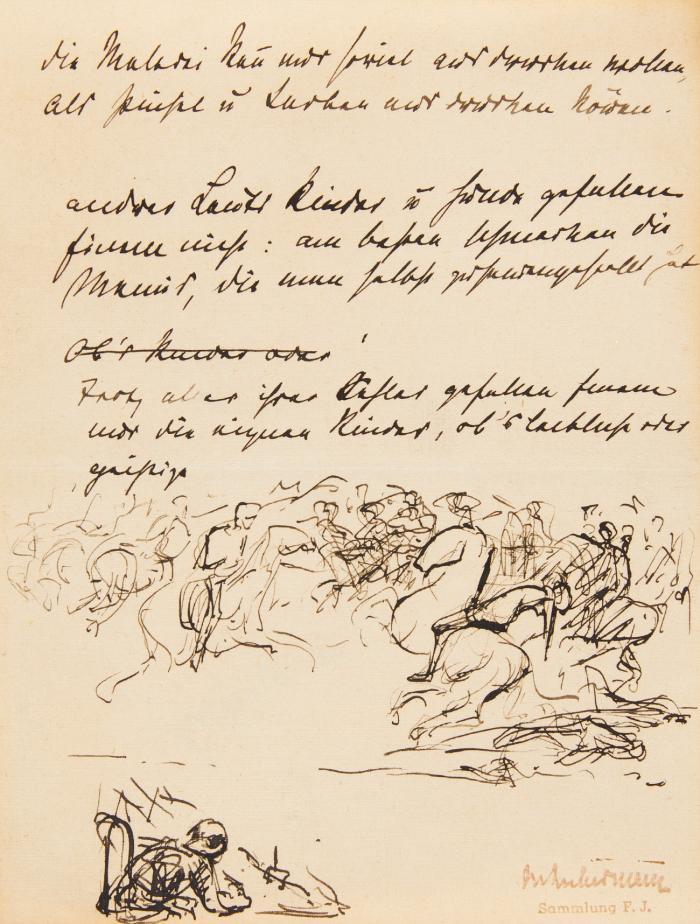 die Malerei kan̄ nur soviel ausdrücken wollen,
als Pinsel u Farben ausdrücken kön̄en.
andrer Leute Kinder u Hunde gefallen
einem nicht: am besten schmecken die
Menus, die man selbst zusam̄engestellt hat
Ob's Kinder oder
Trotz aller ihrer Fehler gefallen einem
nur die eignen Kinder, ob's leibliche oder
geistige
MLiebermann
Sammlung F. J.